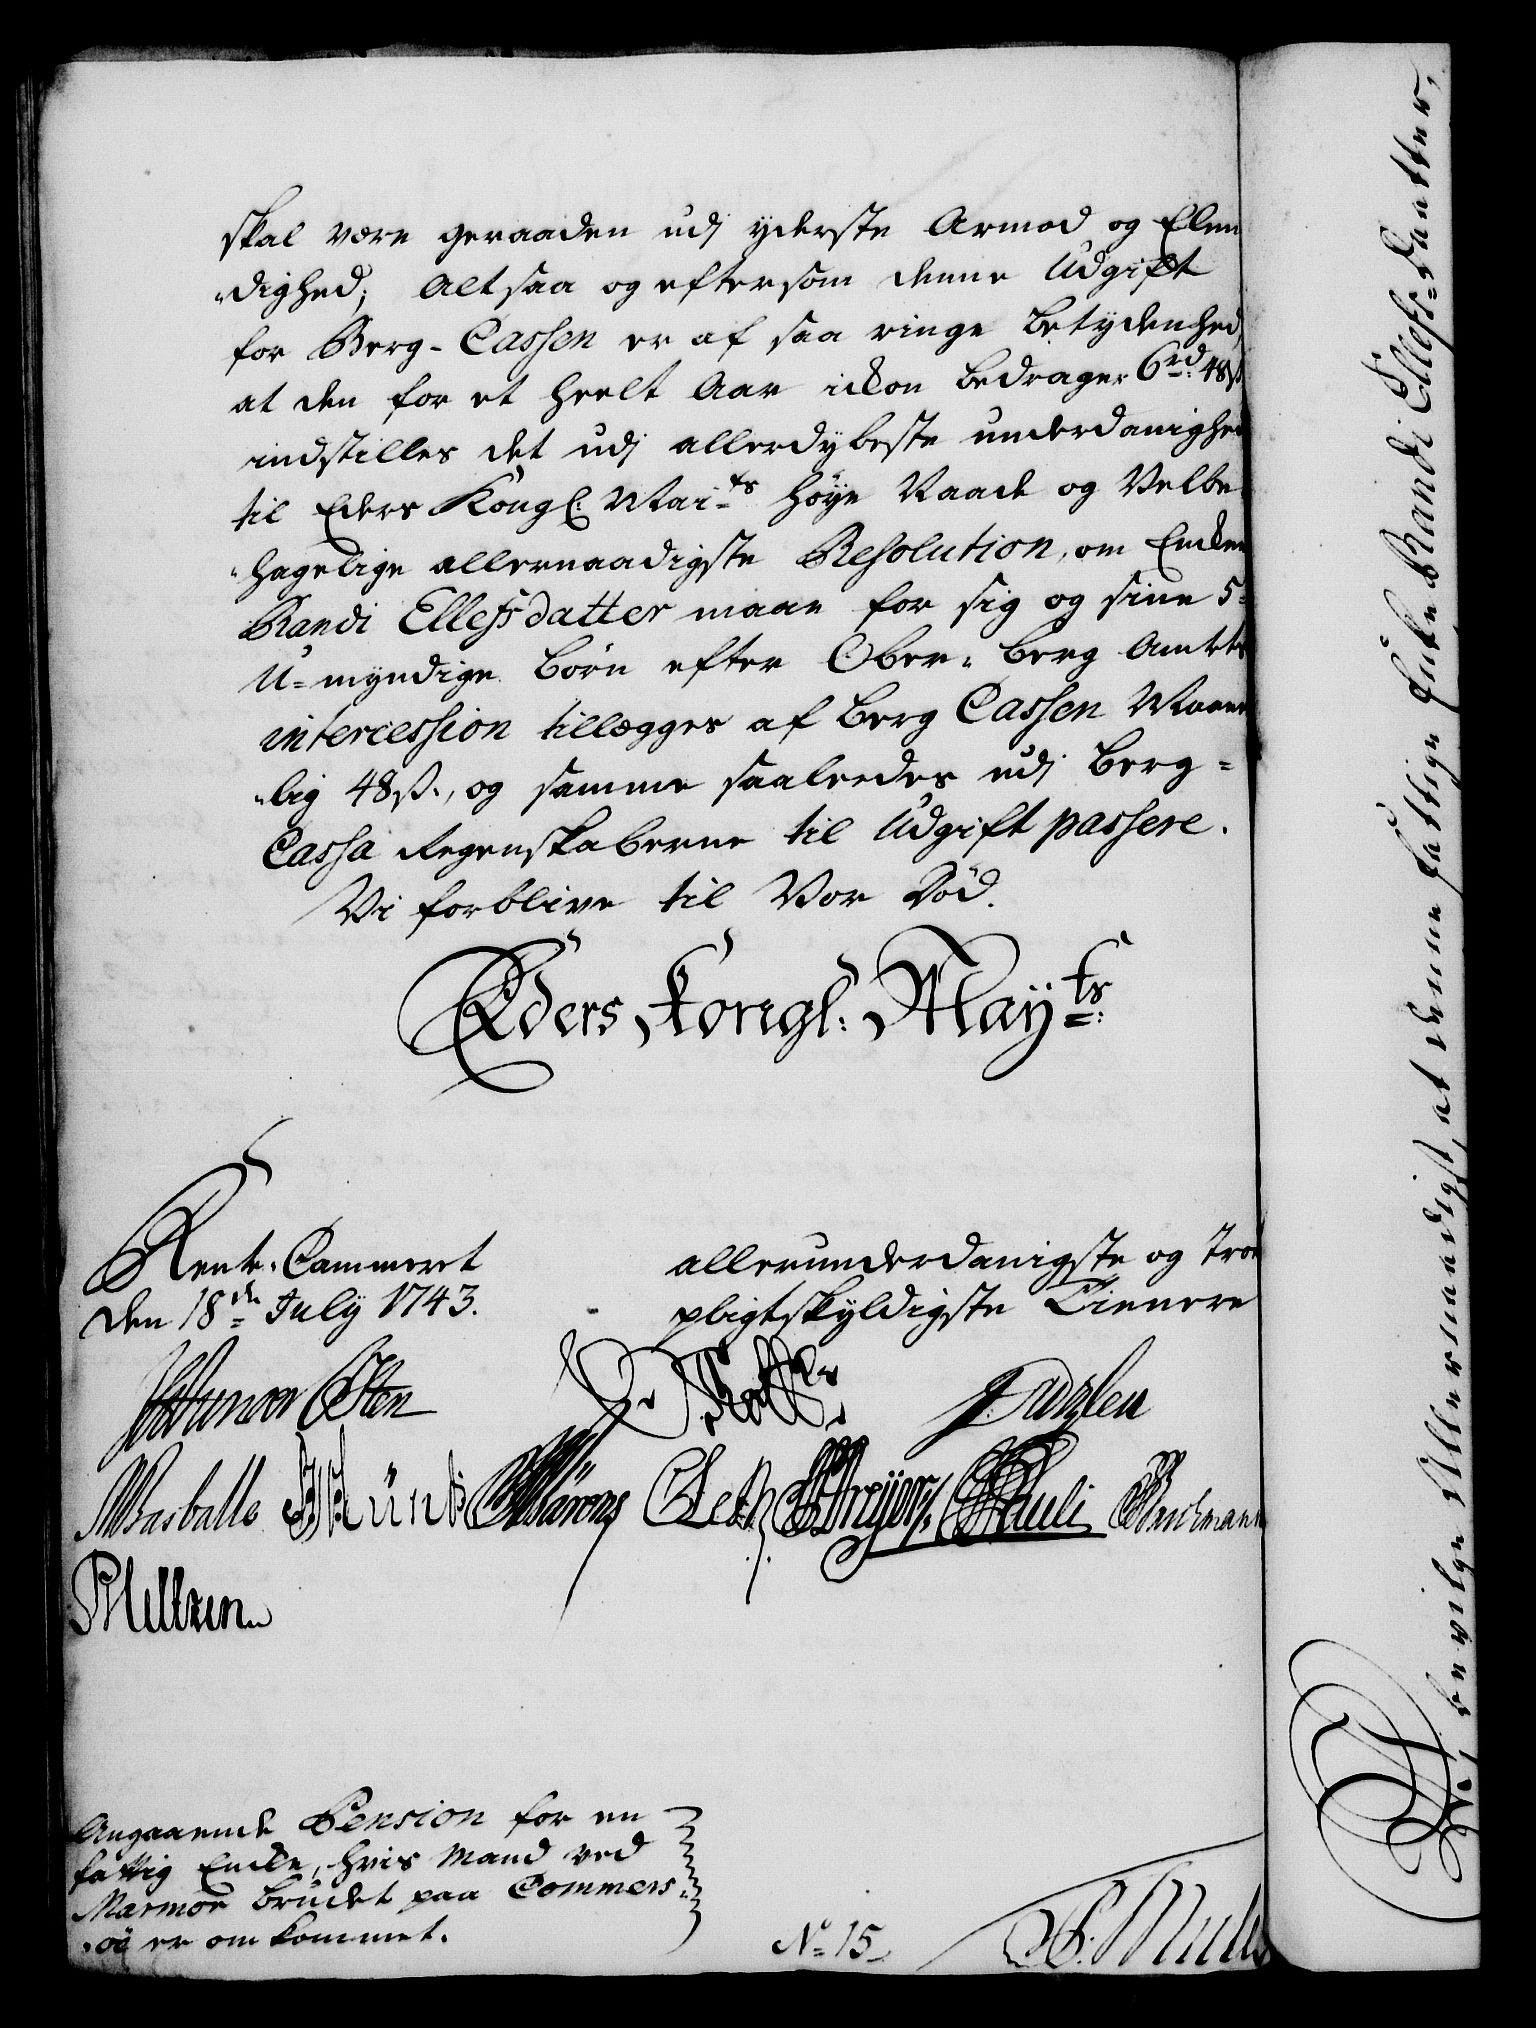 skal være geraaden udj yderste Armod og Elen
„dighed; Altsaa og eftersom denne Udgift
for Berg-Cassen er af saa ringe betydenhed,
at den for et heelt Aar ickon bedrager 6 rd: 48 ß
indstilles det udj allerdybeste underdanighed
til Eders Kongl: Mai-ts høye Raade og Velbe
„hagelige allernaadigste Resolution, om Encken
Randi Ellefsdatter maae for sig og sine 5-
U-myndige børn efter Ober-berg Amtets
intercession tillægges af berg Cassen Maane
„lig 48 ß., og samme saaledes udj berg-
Cassa Regenskaberne til Udgift passere.
Vi forblive til Vor Död.
Eders Kongl: May-ts:
Rente-Cammeret
den 18de July 1743.
allerunderdanigste og Troe
pligtskyldigste Tienere
Osten
JMünt Dreyer Pauli
Angaaende Pension for en
fattig Encke, hvis Mand ved
Marmor bruddet paa Commers-
„öe er omkommet.
No 15
Vj bevilge Allernaadigst, at denne fattige Enke Randi Ellefs-Datter,